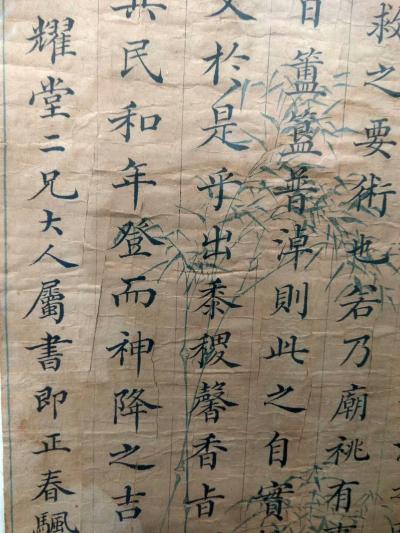 救之要術也若乃廟祧有
簠簋普淖則此之自實
於是乎出黍稷馨香旨
民和年登而神降之吉
耀堂二兄大人屬書即正春颿